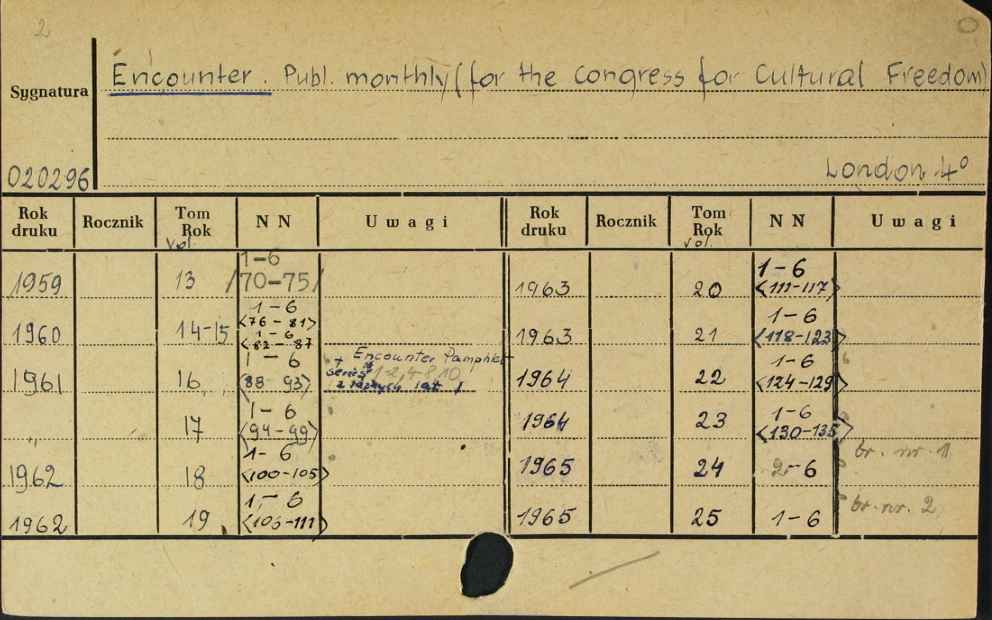 2
Sygnatura
Encounter. Publ. monthly (for the Congress for Cultural Freedom)
020296
London 4°
Rok druku Rocznik Tom Rok vol. N N Uwagi Rok druku Rocznik Tom Rok vol. N N Uwagi
1959 13 1-6 /70-75/ 1963 20 1-6 <111-117>
1960 14-15 1-6 <76-81> 1-6 <82-87 1963 21 1-6 <118-123>
1961 16 1-6 <88 93> + Encounter Pamphlet series 1-2,4-8,10 1964 22 1-6 <124-129>
„ 17 1-6 <94-99> 1964 23 1-6 <130-135>
1962 18 1-6 <100-105> 1965 24 2-6 br. nr. 1
1962 19 1-6 <105-111> 1965 25 1-6 br. nr. 2